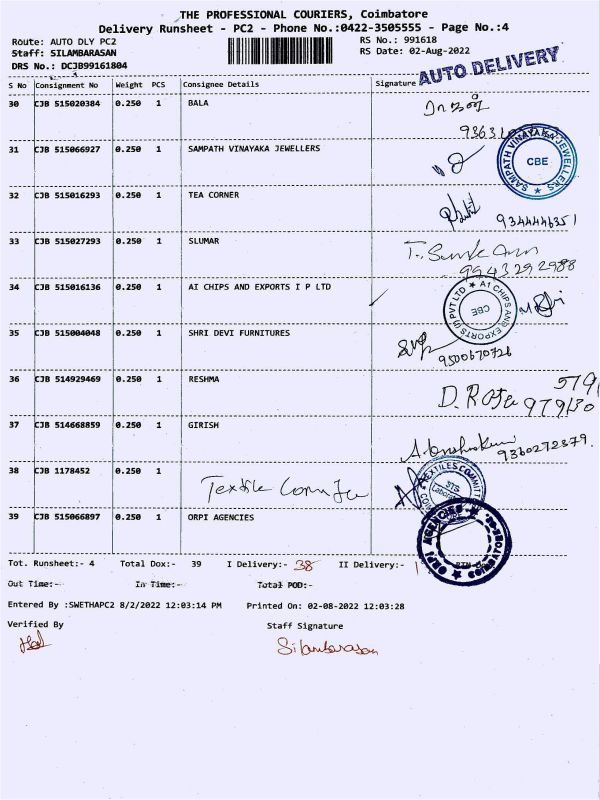 THE PROFESSIONAL COURIERS, Coimbatore
Delivery Runsheet - PC2 - Phone No.:0422-3505555 - Page No.:4
Route: AUTO DLY PC2 RS No.: 991618
Staff: SILAMBARASAN RS Date: 02-Aug-2022
DRS No.: DCJB99161804
AUTO DELIVERY
S No Consignment No Weight PCS Consignee Details Signature
30 CJB 515020384 0.250 1 BALA
31 CJB 515066927 0.250 1 SAMPATH VINAYAKA JEWELLERS
SAMPATH VINAYAKA JEWELLERS CBE
32 CJB 515016293 0.250 1 TEA CORNER
9344446351
33 CJB 515027293 0.250 1 SLUMAR
9943292988
34 CJB 515016136 0.250 1 AI CHIPS AND EXPORTS I P LTD
A1 CHIPS AND EXPORTS (I) PVT LTD CBE
35 CJB 515004048 0.250 1 SHRI DEVI FURNITURES
9500670726
36 CJB 514929469 0.250 1 RESHMA
D.
37 CJB 514668859 0.250 1 GIRISH
9360272379.
38 CJB 1178452 0.250 1
Textile
TEXTILES COMMITTEE
39 CJB 515066897 0.250 1 ORPI AGENCIES
ORPI AGENCIES
Tot. Runsheet:- 4 Total Dox:- 39 I Delivery:- 38 II Delivery:- 1
Out Time:- In Time:- Total POD:-
Entered By :SWETHAPC2 8/2/2022 12:03:14 PM Printed On: 02-08-2022 12:03:28
Verified By Staff Signature
Silambarasan